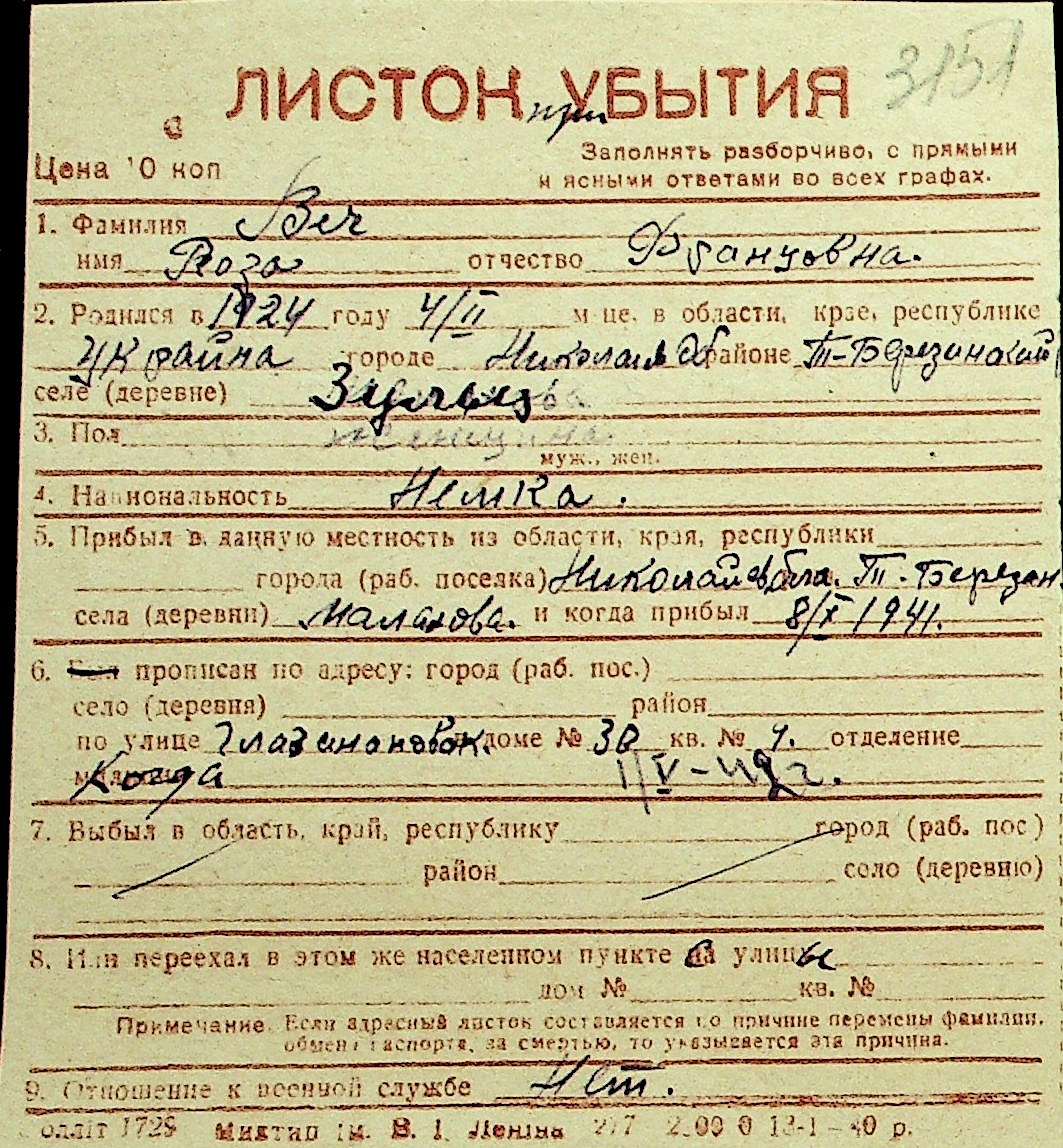 3151
ЛИСТОК при УБЫТИЯ
Цена 10 коп
Заполнять разборчиво, с прямыми
и ясными ответами во всех графах.
1. Фамилия Веч
имя Роза отчество Францовна.
2. Родился в 1924 году 4/II м-це, в области, крае, республике
Украйна городе Николаев об районе Т-Березинский
селе (деревне)
3. Пол женщина
муж., жен.
4. Национальность Немка.
5. Прибыл в данную местность из области, края, республики
города (раб. поселка) Николаев обла. Т. Березан
села (деревни) Малахова. и когда прибыл 8/X 1941.
6. прописан по адресу: город (раб. пос.)
село (деревня) район
по улице доме № 38 кв. № 4. отделение
Когда 1/V-42 г.
7. Выбыл в область, край, республику город (раб. пос)
район село (деревню)
8. Или переехал в этом же населенном пункте с улицы
дом № кв. №
Примечание. Если адресный листок составляется по причине перемены фамилии,
обмена паспорта, за смертью, то указывается эта причина.
9. Отношение к военной службе Нет.
1729 Миктип ім. В. І. Леніна 217 13-1-40 р.